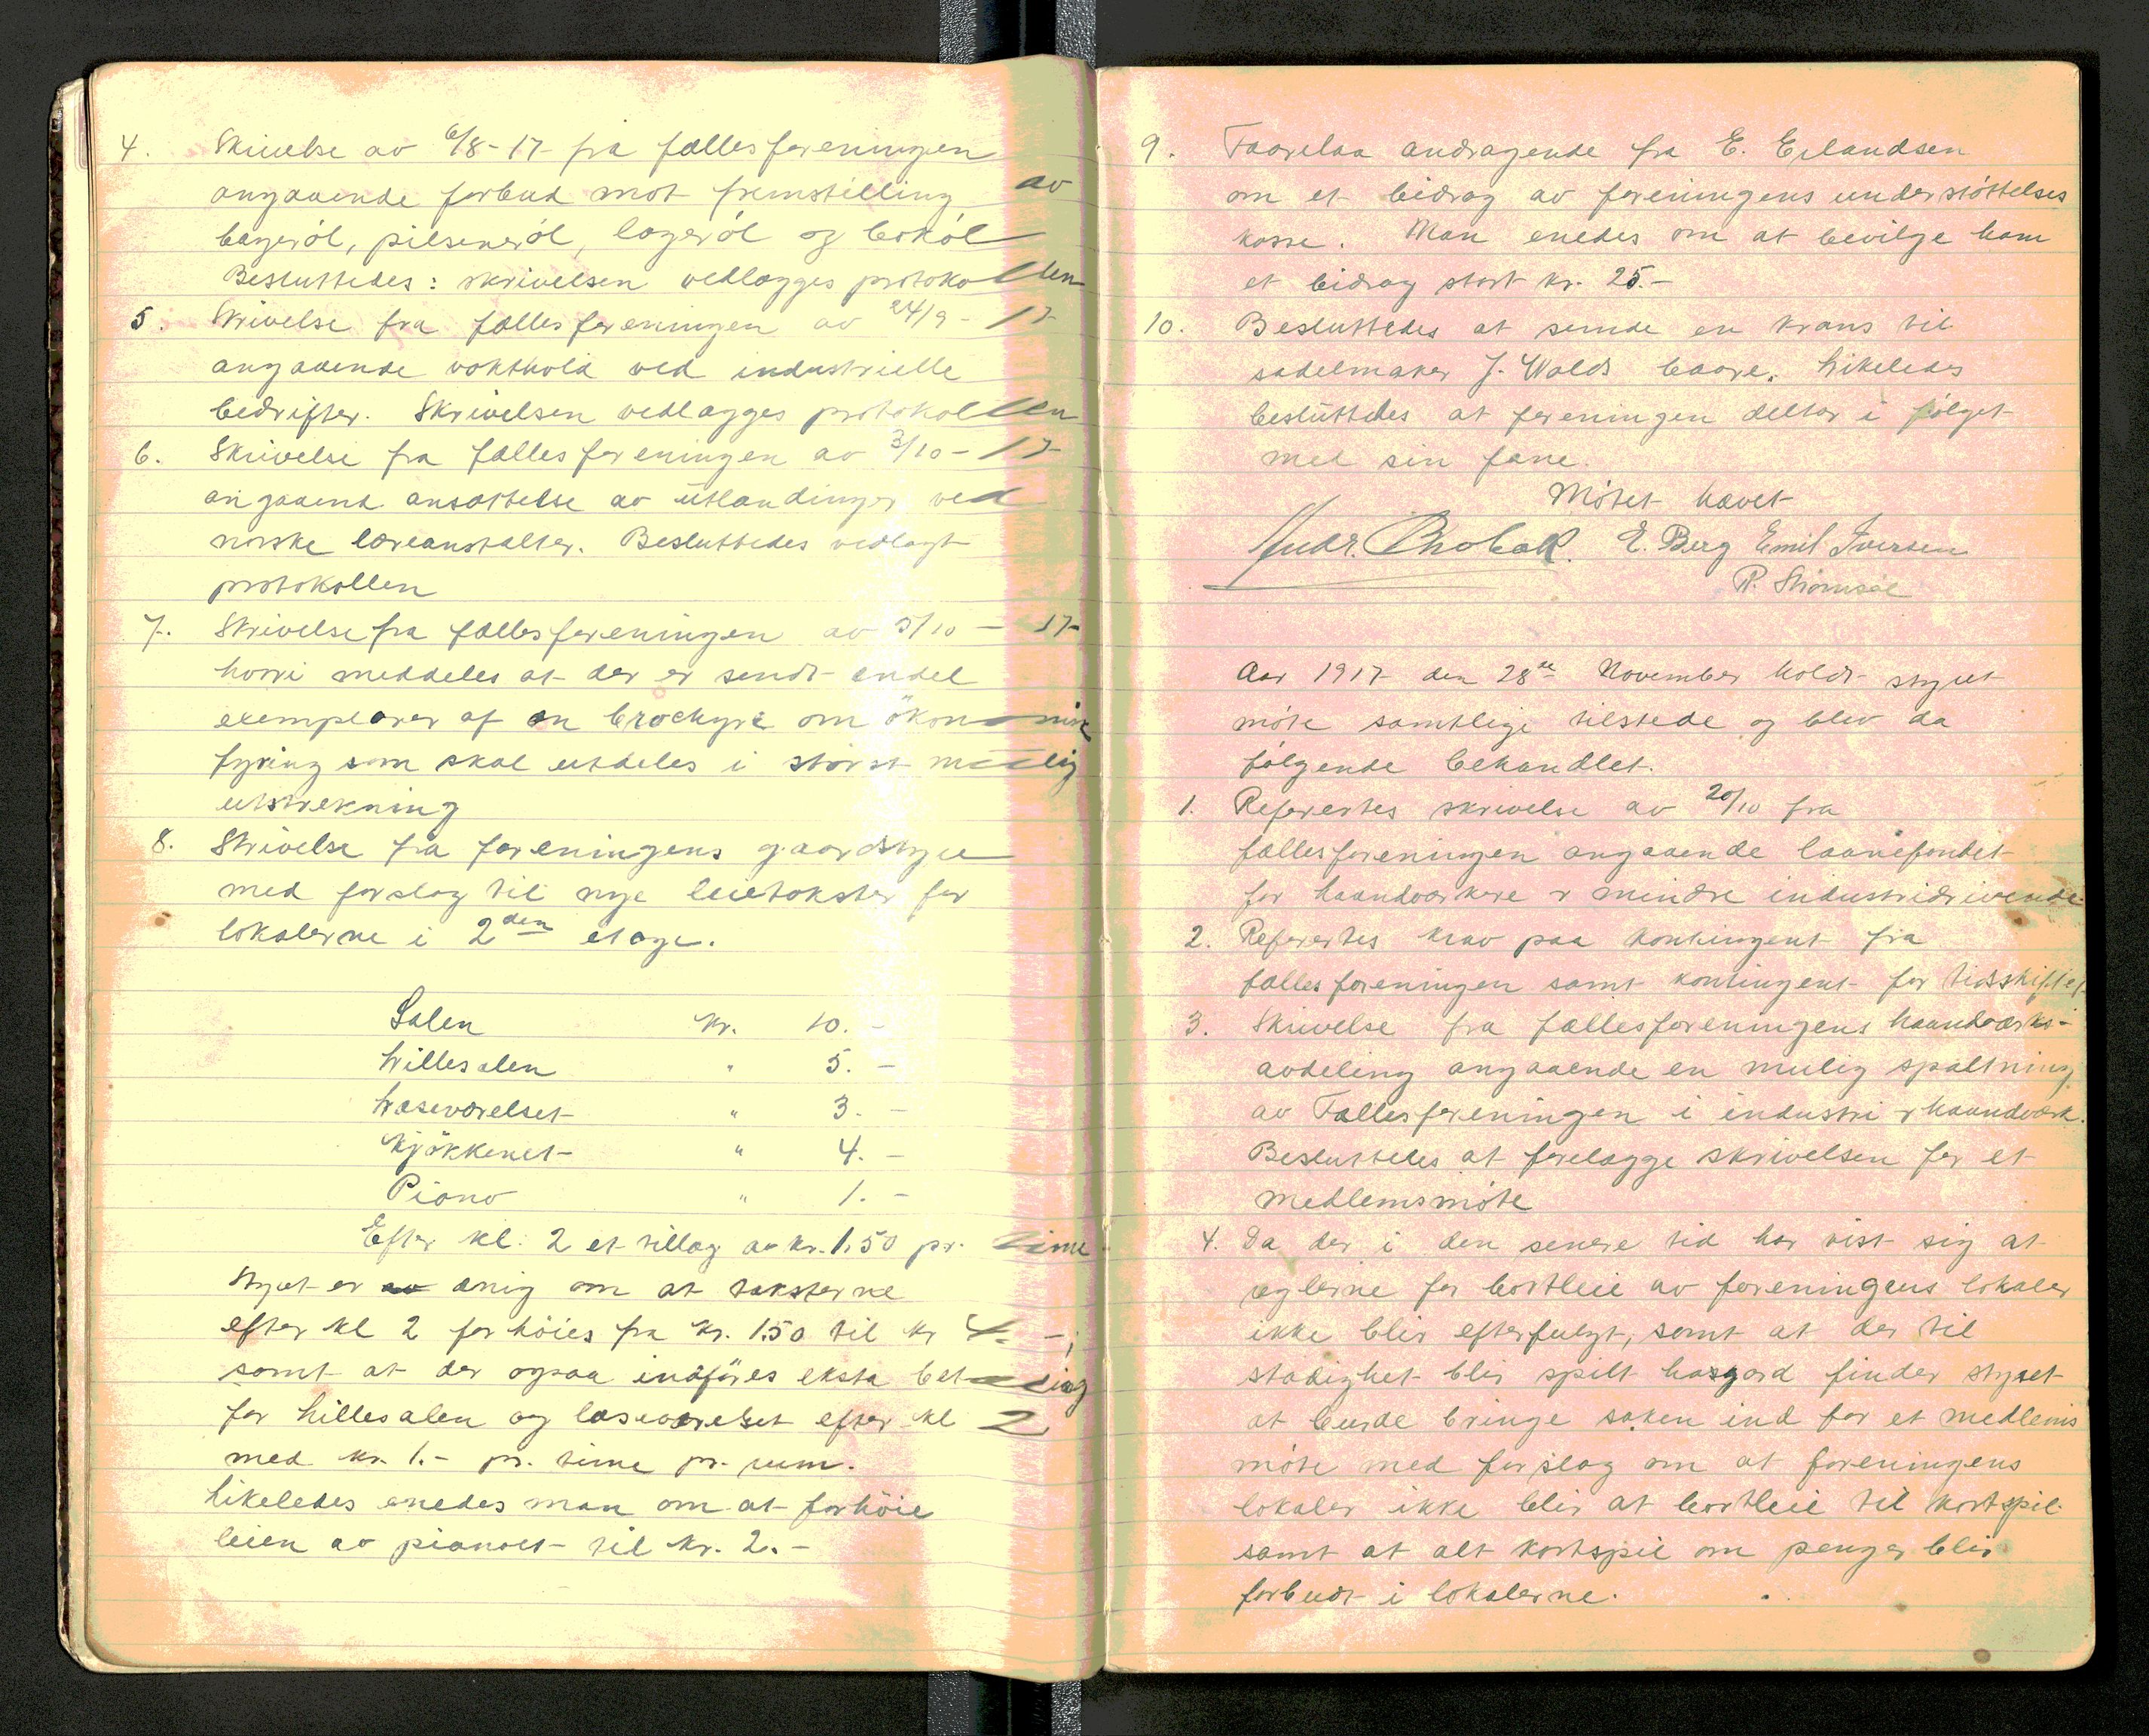 4. Skrivelse av 6/8-17 fra fællesforeningen
angaaende forbud mot fremstilling av
bayerøl, pilsenerøl, lagerøl og bokøl
Besluttedes: skrivelsen vedlægges protokollen
5. Skrivelse fra fællesforeningen av 24/9-17
angaaende vakthold ved industrielle
bedrifter. Skrivelsen vedlægges protokollen
6. Skrivelse fra fællesforeningen av 3/10-17
angaaend ansættelse av utlændinger ved
norske læreanstalter. Besluttedes vedlagt
protokollen
7. Skrivelse fra fællesforeningen av 5/10-17
hvori meddeles at der er sendt endel
exemplarer af en brochyre om økonomisk
fyring som skal utdeles i størst mulig
utstrekning
8. Skrivelse fra foreningens gaardstyre
med forslag til nye leietakster for
lokalerne i 2den etage.
Salen kr. 10.-
Lillesalen " 5.-
Læseværelset " 3.-
Kjøkkenet " 4.-
Piano " 1.-
Efter kl. 2 et tillæg av kr. 1.50 pr. time
Styret er av enig om at taksterne
efter kl 2 forhøies fra kr. 1.50 til kr 4.-,
samt at der ogsaa indføres eksta betaling
for Lillesalen og læseværelset efter kl 2
med kr. 1.- pr. time pr. rum.
Likeledes enedes man om at forhøie
leien av pianoet til kr. 2.-
9. Foorelaa andragende fra E. Erlandsen
om et bidrag av foreningens understøttelses
kasse. Man enedes om at bevilge ham
et bidrag stort kr. 25.-
10. Besluttedes at sende en krans til
sadelmaker J. Wolds baare. Likeledes
besluttedes at foreningen deltar i følget
med sin fane.
Møtet hævet
Andr. E. Berg Emil Iversen
R. Strømsøe
Aar 1917 den 28de November holdt styret
møte samtlige tilstede og blev da
følgende behandlet.
1. Referertes skrivelse av 20/10 fra
fællesforeningen angaaende laanefondet
for haandværkere & mindre industridrivende.
2. Referertes krav paa kontingent fra
fællesforeningen samt kontingent for tidsskriftet
3. Skrivelse fra fællesforeningens haandværks-
avdeling angaaende en mulig spaltning
av Fællesforeningen i industri & haandværk.
Besluttedes at forelægge skrivelsen for et
medlemsmøte
4. Da der i den senere tid har vist sig at
reglerne for bortleie av foreningens lokaler
ikke blir efterfulgt, samt at der til
stadighet blir spilt hasard finder styret
at burde bringe saken ind for et medlems
møte med forslag om at foreningens
lokaler ikke blir at bortleie til kortspil
samt at alt kortspil om penger blir
forbudt i lokalerne.